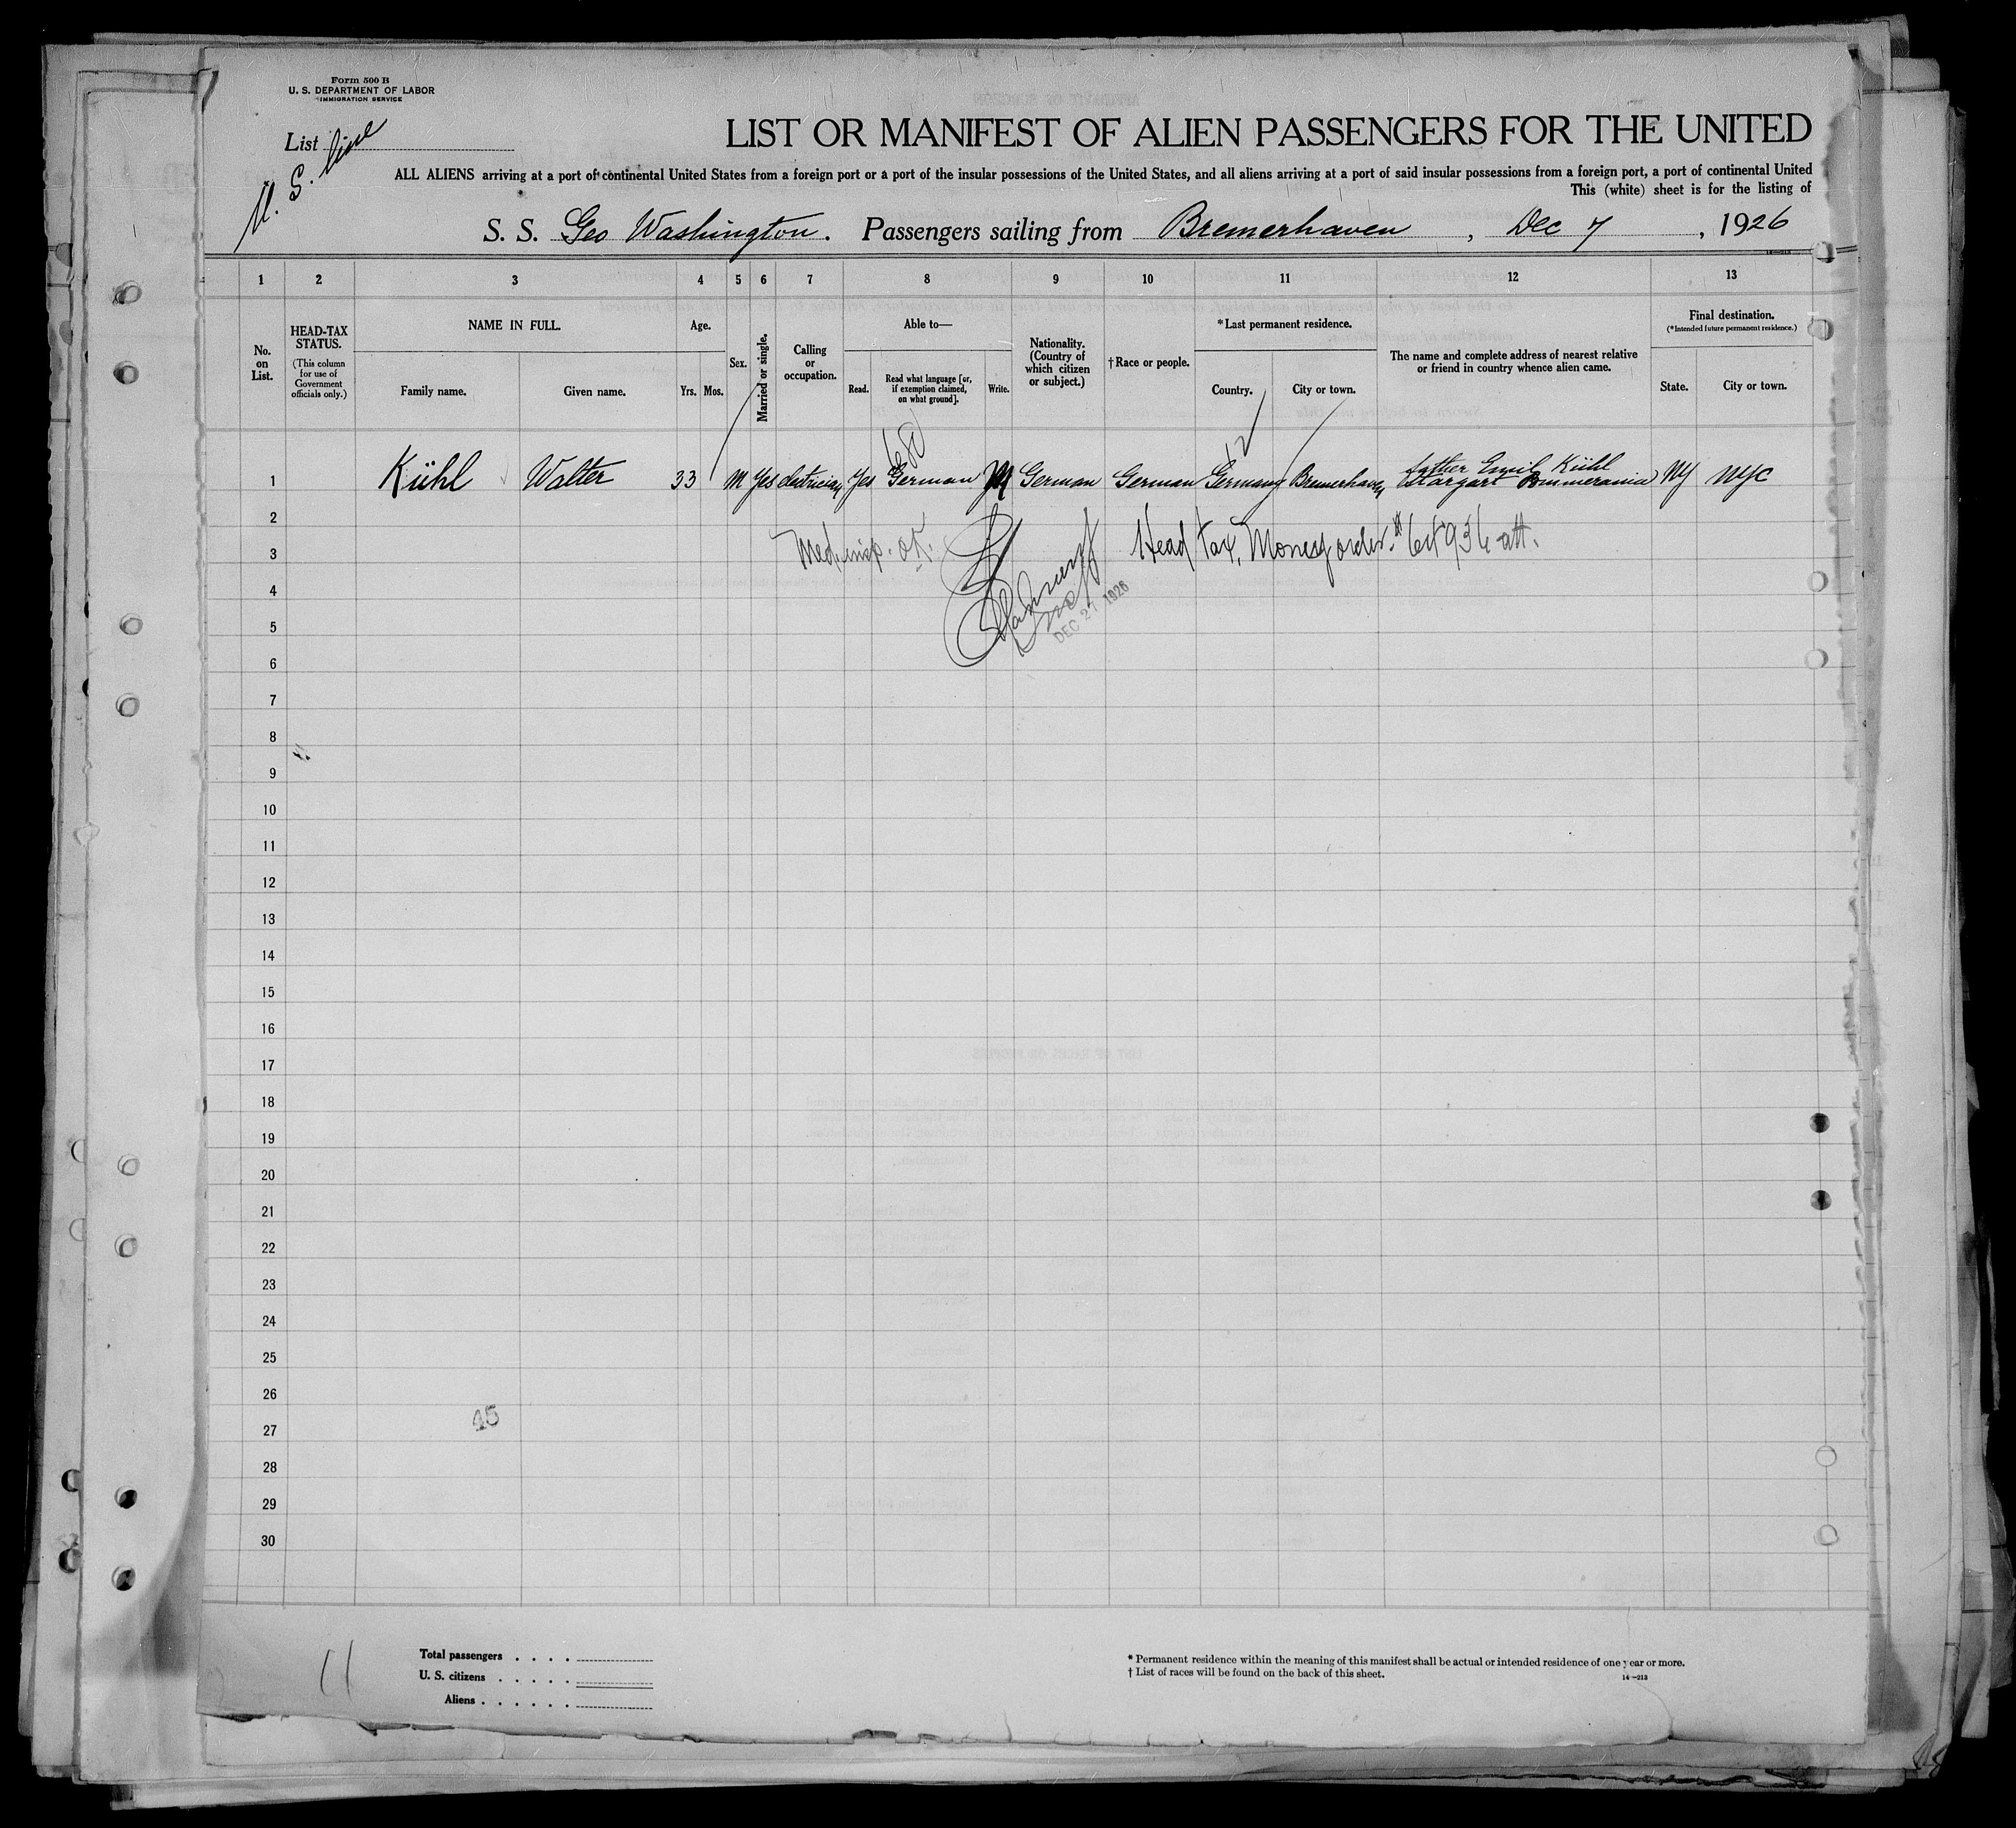 Form 500 B
U. S. DEPARTMENT OF LABOR
IMMIGRATION SERVICE
List
U. S. line
LIST OR MANIFEST OF ALIEN PASSENGERS FOR THE UNITED
ALL ALIENS arriving at a port of continental United States from a foreign port or a port of the insular possessions of the United States, and all aliens arriving at a port of said insular possessions from a foreign port, a port of continental United
This (white) sheet is for the listing of
S. S. Geo Washington. Passengers sailing from Bremerhaven, Dec 7, 1926
1 2 3 4 5 6 7 8 9 10 11 12 13
No. on List.
HEAD-TAX STATUS.
(This column for use of Government officials only.)
NAME IN FULL.
Family name. Given name.
Age.
Yrs. Mos.
Sex.
Married or single.
Calling or occupation.
Able to—
Read. Read what language [or, if exemption claimed, on what ground]. Write.
Nationality. (Country of which citizen or subject.)
† Race or people.
* Last permanent residence.
Country. City or town.
The name and complete address of nearest relative or friend in country whence alien came.
Final destination.
(* Intended future permanent residence.)
State. City or town.
12
1 Kühl Walter 33 M Yes electrician Yes German German German Germany Bremerhaven father Emil Kühl Stargart Pommerania NY NYC
2
3 Med. insp. OK. Head Tax, Money order
4
DEC 27 1926
5
6
7
8
9
10
11
12
13
14
15
16
17
18
19
20
21
22
23
24
25
26
45
27
28
29
30
11
Total passengers
U. S. citizens
Aliens
* Permanent residence within the meaning of this manifest shall be actual or intended residence of one year or more.
† List of races will be found on the back of this sheet.
14—213